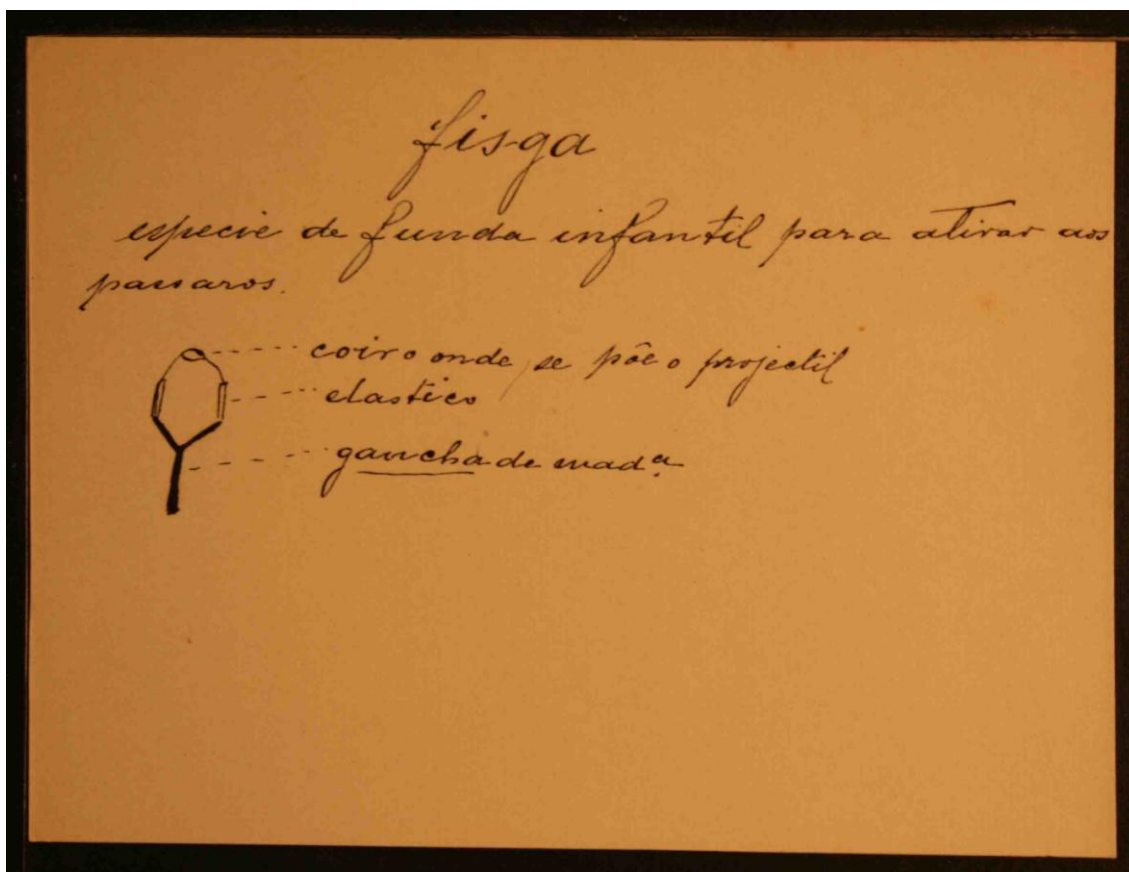 fisga
especie de funda infantil para atirar aos
passaros.
coiro onde se põe o projectil
elastico
gancha de mad.ª